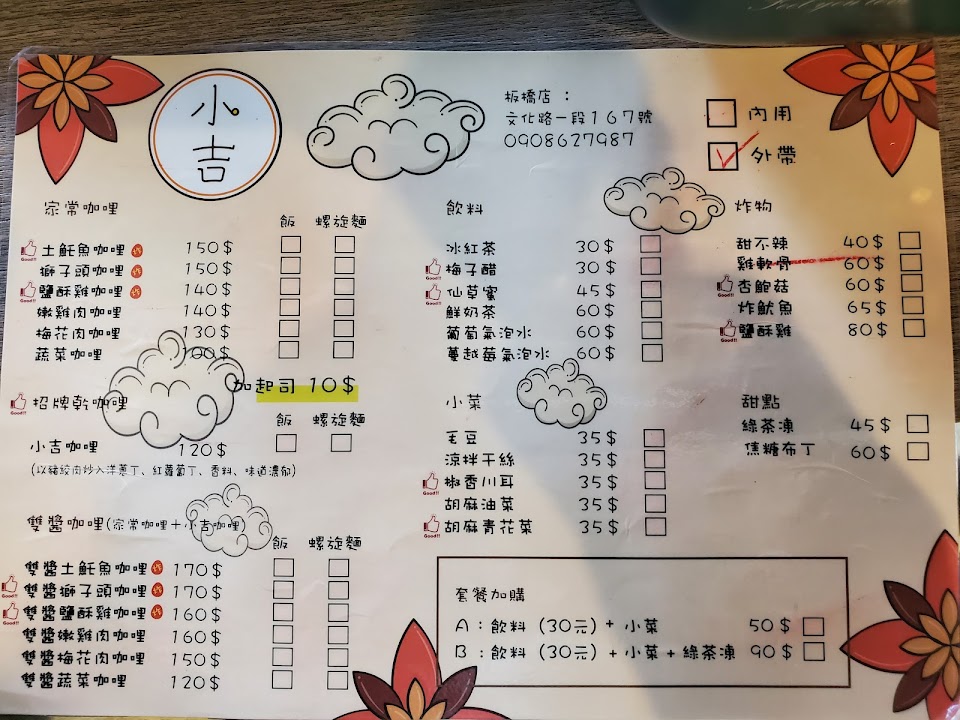 小吉
板橋店：
文化路一段167號
0908627987
內用
外帶
家常咖哩
飯 螺旋麵
土魠魚咖哩 150$
獅子頭咖哩 150$
鹽酥雞咖哩 140$
嫩雞肉咖哩 140$
梅花肉咖哩 130$
蔬菜咖哩 100$
加起司 10$
招牌乾咖哩
飯 螺旋麵
小吉咖哩 120$
(以豬絞肉炒入洋蔥丁、紅蘿蔔丁、香料、味道濃郁)
雙醬咖哩(家常咖哩+小吉咖哩)
飯 螺旋麵
雙醬土魠魚咖哩 170$
雙醬獅子頭咖哩 170$
雙醬鹽酥雞咖哩 160$
雙醬嫩雞肉咖哩 160$
雙醬梅花肉咖哩 150$
雙醬蔬菜咖哩 120$
飲料
冰紅茶 30$
梅子醋 30$
仙草蜜 45$
鮮奶茶 60$
葡萄氣泡水 60$
蔓越莓氣泡水 60$
小菜
毛豆 35$
涼拌干絲 35$
椒香川耳 35$
胡麻油菜 35$
胡麻青花菜 35$
炸物
甜不辣 40$
雞軟骨 60$
杏鮑菇 60$
炸魷魚 65$
鹽酥雞 80$
甜點
綠茶凍 45$
焦糖布丁 60$
套餐加購
A：飲料（30元）+小菜 50$
B：飲料（30元）+小菜+綠茶凍 90$